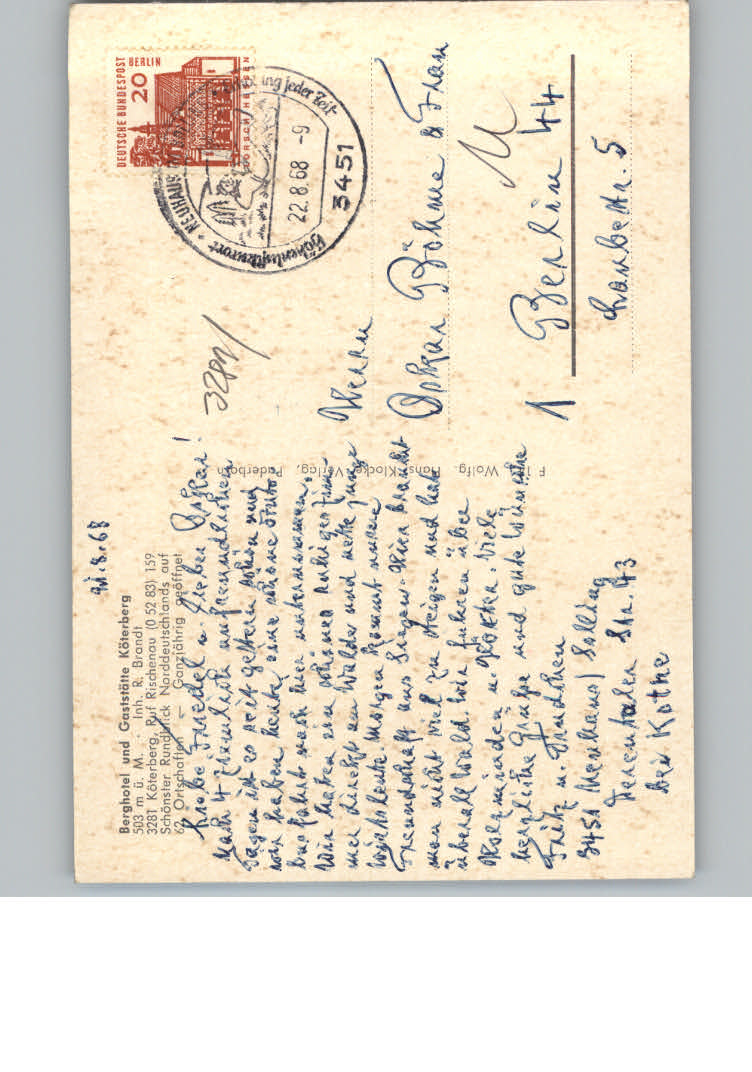 Berghotel und Gaststätte Köterberg
503 m ü. M. · Inh. R. Brandt
3281 Köterberg, Ruf Rischenau (0 52 83) 159
Schönster Rundblick Norddeutschlands auf
62 Ortschaften — Ganzjährig geöffnet
21.8.68
Liebe Friedel u. lieber Oskar!
Nach 4 ziemlich unfreundlichen
Tagen ist es seit gestern schön und
wir haben heute eine schöne
Busfahrt nach hier unternommen.
Wir haben ein schönes ruhiges Zim-
mer direkt am Walde und nette junge
Wirtsleute. Morgen kommt unsere
Freundschaft aus Siegen. Hier braucht
man nicht viel zu steigen und hat
überall Wald. Wir fuhren über
Holzminden u. Höxter. Viele
herzliche Grüße und gute Wünsche
Fritz u. Trudchen
3451 Neuhaus/Solling
Derentaler Str. 43
bei Kothe
Wolfg. Hans Klocke Verlag, Paderborn
DEUTSCHE BUNDESPOST BERLIN
20
LORSCH/HESSEN
NEUHAUS
jeder Zeit
22.8.68 -9
3451
Höhenluftkurort
Herrn
Oskar Böhme & Frau
1 Berlin 44